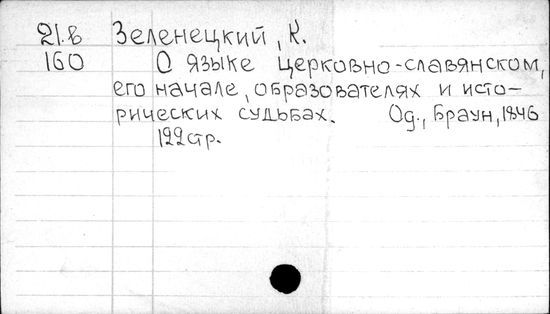 21.в Зеленецкий, К.
160 О языке церковно-славянском,
его начале, образователях и исто-
рических судьбах. Од., Браун, 1846
122 стр.